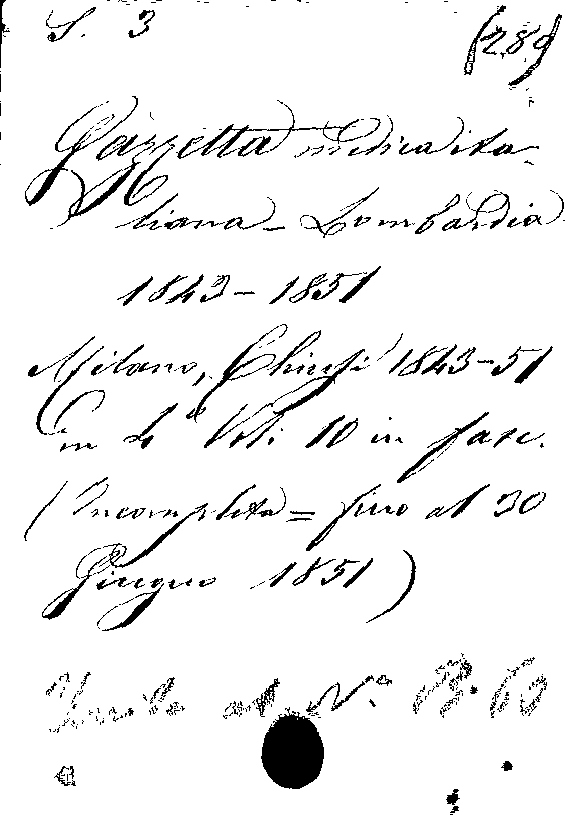 S. 3 (289)
Gazzetta medica ita-
liana - Lombardia
1843 - 1851
Milano, Chiusi 1843-51
in 4° Voli 10 in fasc.
(Incompleta = fino al 30
Giugno 1851)
Unito al N.° B. 60